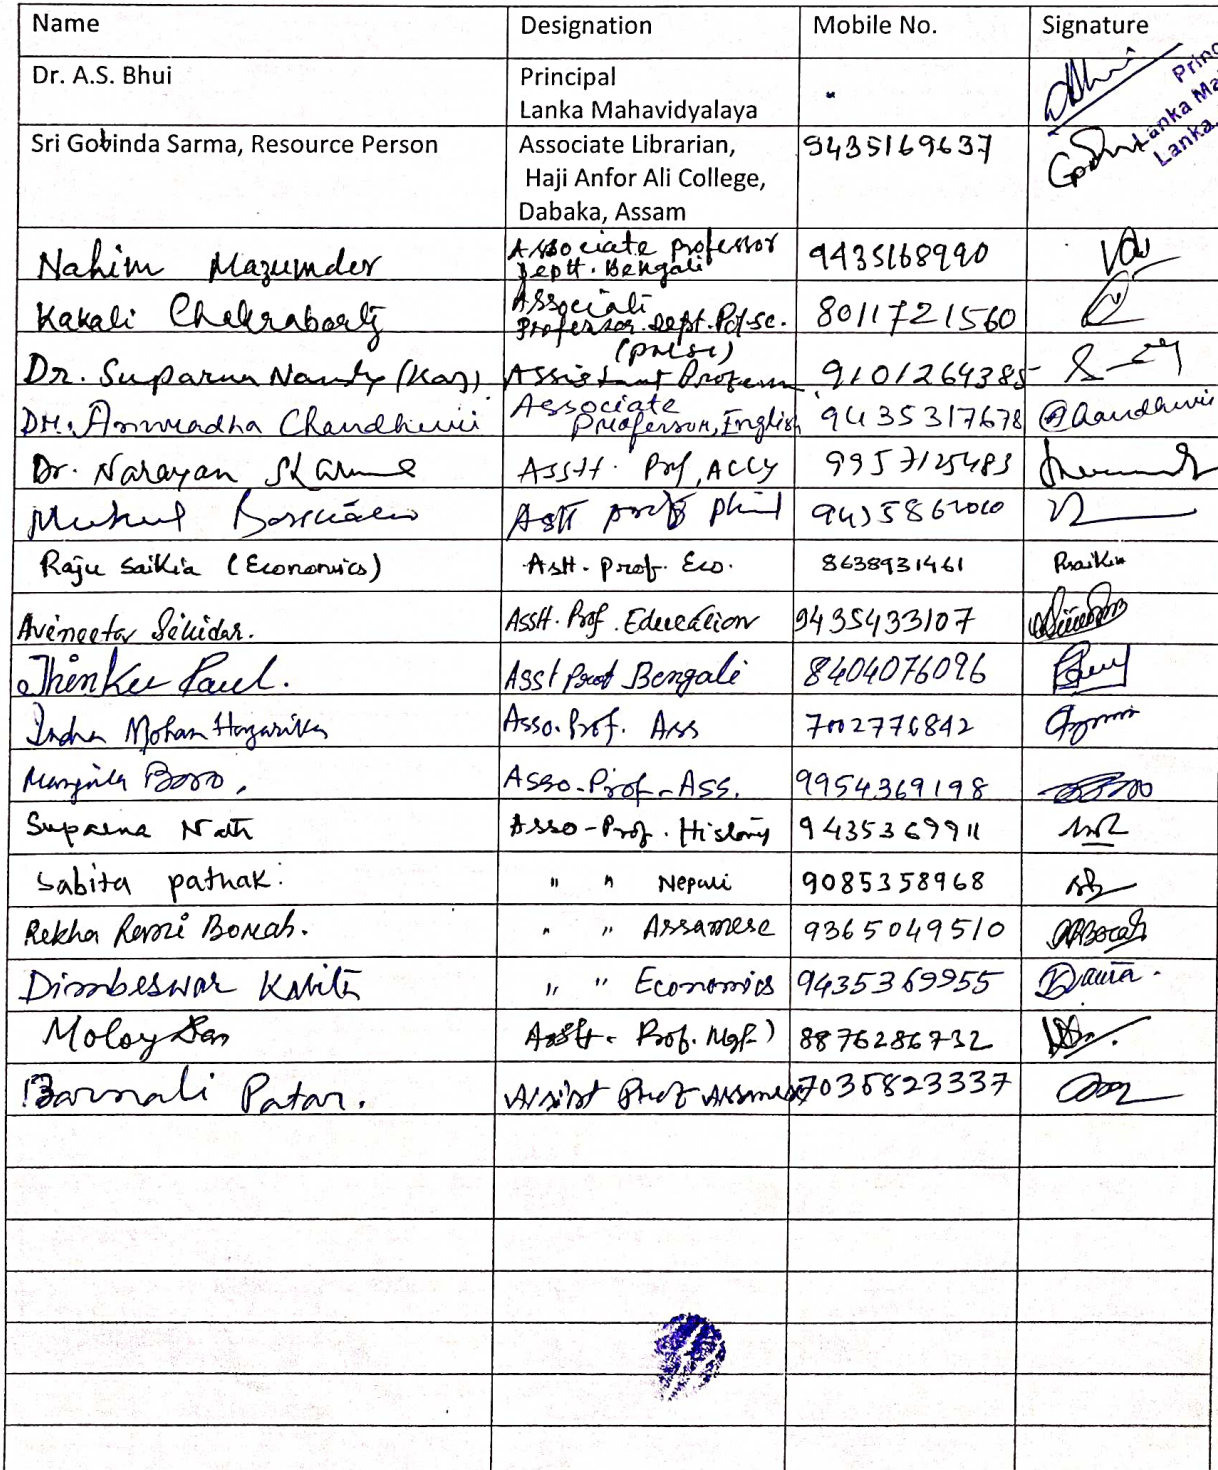 Name Designation Mobile No. Signature
Dr. A.S. Bhui Principal
Lanka Mahavidyalaya
Lanka
Sri Gobinda Sarma, Resource Person Associate Librarian, 9435169637
Haji Anfor Ali College,
Dabaka, Assam
Nahim Mazumder Associate professor 9435168990
Deptt. Bengali
Kakali Chakrabarty Associate 8011721560
Professor. Dept. Pol. Sc.
(Pol Sc)
Dr. Suparna Nandy (Kar) Assistant Professor 9101264385
DR. Anuradha Chaudhuri Associate 9435317678 Chaudhuri
Professor, English
Dr. Narayan Sharma Asstt. Prof, ACCY 9957125483
Mukul Astt prof phil
Raju Saikia (Economics) Astt. prof. Eco. 8638931461 RSaikia
Avineeta Sikidar. Asstt. Prof. Education 9435433107
Thinku Paul. Asst Prof Bengali 8404076096 Paul
Indra Mohan Hazarika Asso. Prof. Ass 7002776842
Boro, Asso-Prof-Ass. 9954369198
Suparna Nath Asso-Prof. History 9435369911
Sabita pathak: " " Nepali 9085358968
Rekha Rani Borah. " " Assamese 9365049510 RRBorah
Dimbeswar Kalita " " Economics 9435369955
Moloy Das Asstt. Prof. 8876286732
Barnali Patar. Assist Prof Assamese 7035823337